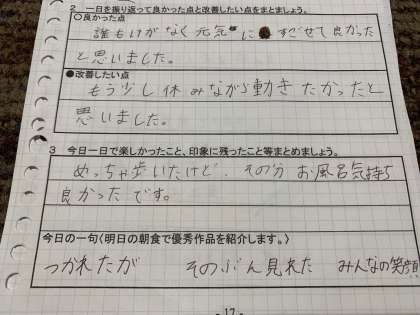 2 一日を振り返って良かった点と改善したい点をまとめましょう。
○良かった点
誰もけがなく元気に すごせて良かった
と思いました。
●改善したい点
もう少し休みながら動きたかったと
思いました。
3 今日一日で楽しかったこと、印象に残ったこと等まとめましょう。
めっちゃ歩いたけど、その分 お風呂気持ち
良かったです。
今日の一句〈明日の朝食で優秀作品を紹介します。〉
つかれたが そのぶん見れた みんなの笑顔
- 17 -